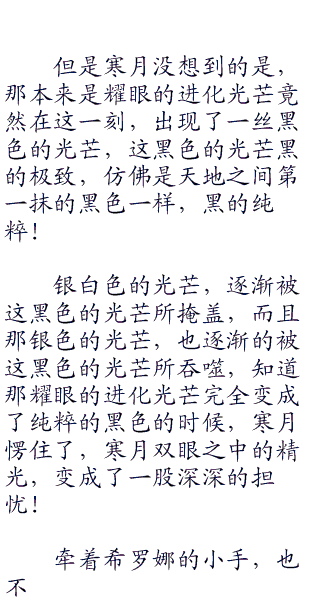 但是寒月没想到的是，
那本来是耀眼的进化光芒竟
然在这一刻，出现了一丝黑
色的光芒，这黑色的光芒黑
的极致，仿佛是天地之间第
一抹的黑色一样，黑的纯
粹！
银白色的光芒，逐渐被
这黑色的光芒所掩盖，而且
那银色的光芒，也逐渐的被
这黑色的光芒所吞噬，知道
那耀眼的进化光芒完全变成
了纯粹的黑色的时候，寒月
愣住了，寒月双眼之中的精
光，变成了一股深深的担
忧！
牵着希罗娜的小手，也
不